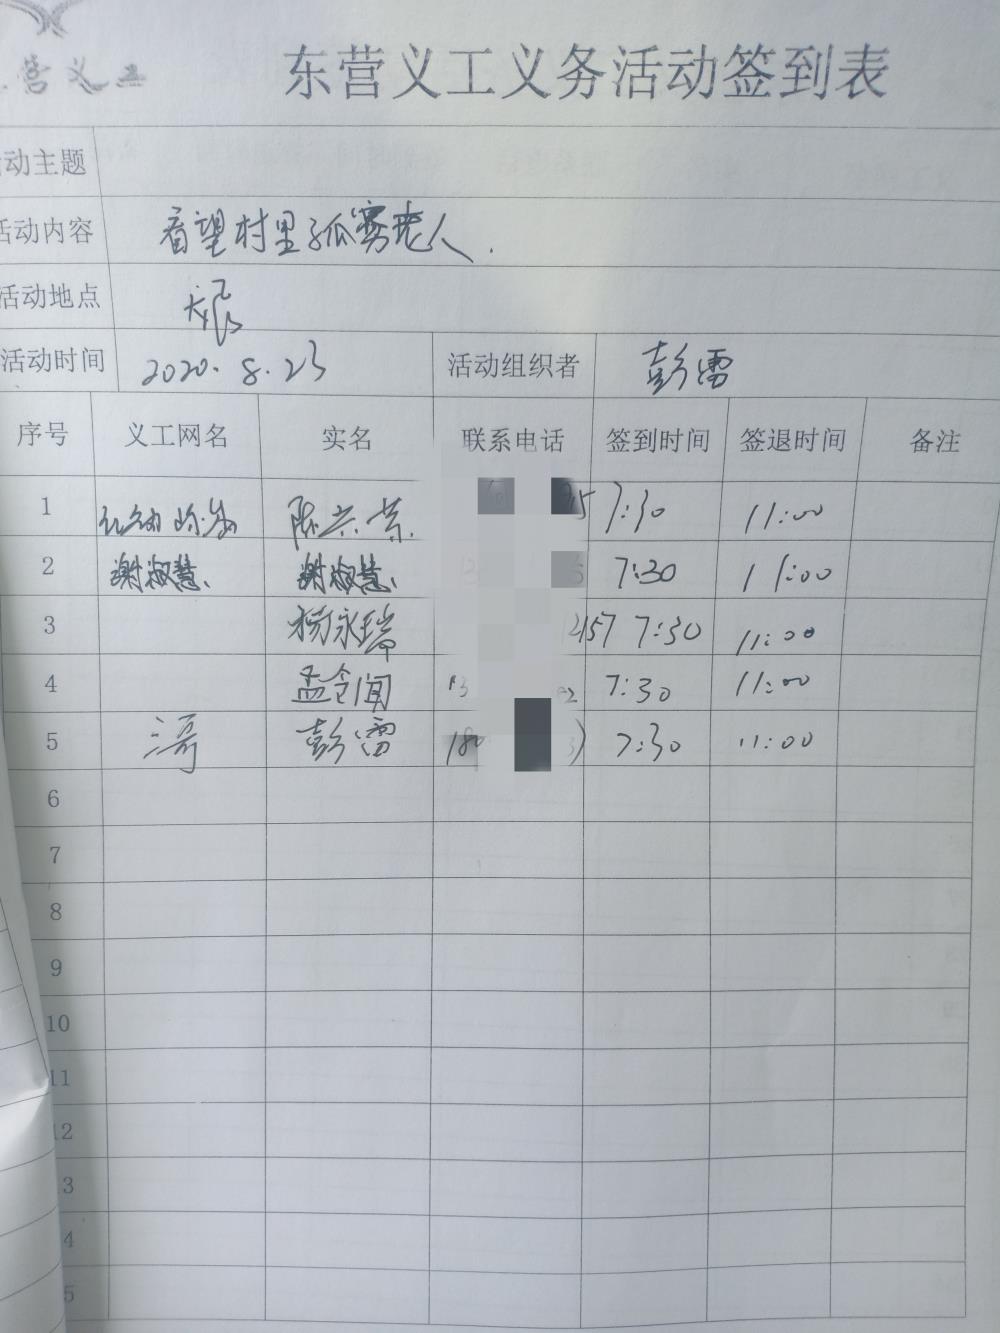 营义工
东营义工义务活动签到表
动主题
活动内容 看望村里孤寡老人.
活动地点
活动时间 2020.8.23 活动组织者 彭雷
序号 义工网名 实名 联系电话 签到时间 签退时间 备注
1 陈兴荣. 5 7:30 11:00
2 谢淑慧、 谢淑慧、 7:30 11:00
3 杨永瑞 2157 7:30 11:00
4 孟令闻 13 2 7:30 11:00
5 三哥 彭雷 180 7:30 11:00
6
7
8
9
10
11
12
3
4
5